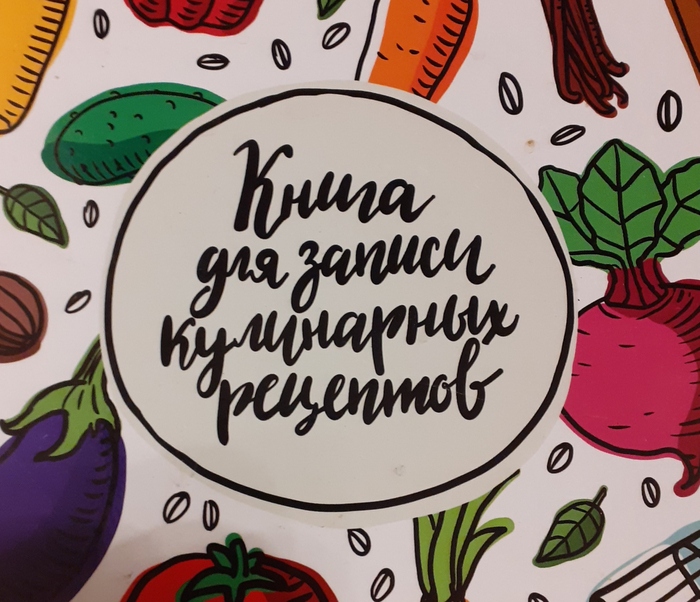 Книга
для записи
кулинарных
рецептов